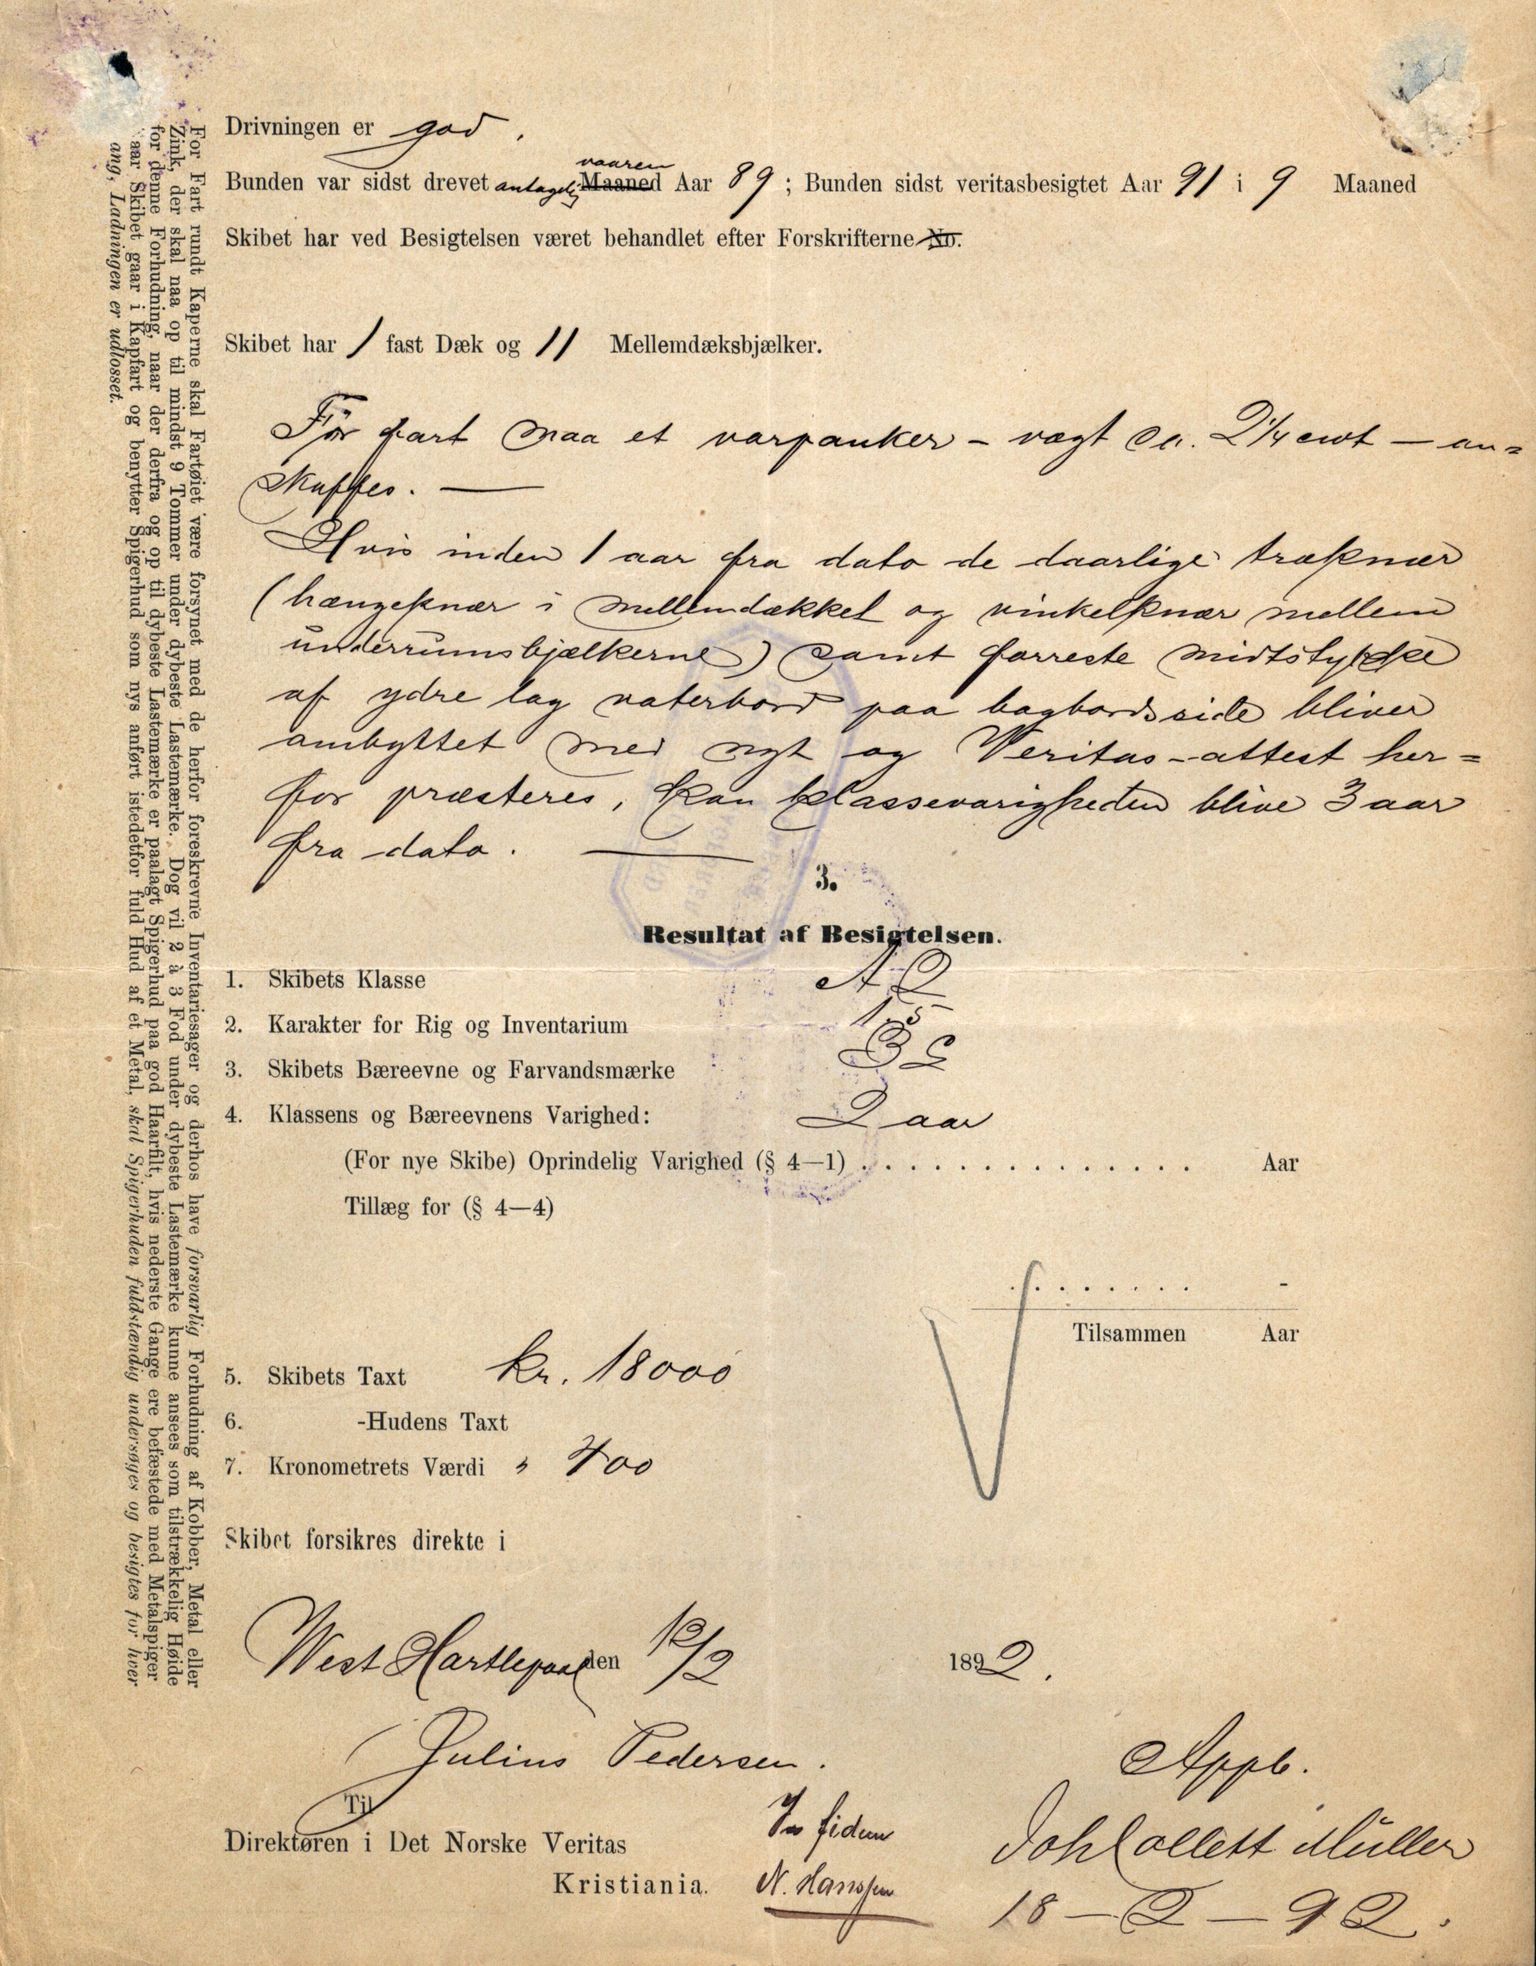 Drivningen er god.
vaaren
Bunden var sidst drevet antagelig Maaned Aar 89; Bunden sidst veritasbesigtet Aar 91 i 9 Maaned
Skibet har ved Besigtelsen været behandlet efter Forskrifterne No.
Skibet har 1 fast Dæk og 11 Mellemdæksbjælker.
Før fart maa et varpanker – vægt ca. 2 1/4 cwt – an=
skaffes. —
Hvis inden 1 aar fra dato de daarlige træknær
(hængeknær i mellemdækket og vinkelknær mellem
underrumsbjælkerne) samt forreste midtstykke
af ydre lag vaterbord paa bagbordsside bliver
ombyttet med nyt og Veritas-attest her=
for præsteres, kan klassevarigheden blive 3 aar
fra dato. —
3.
Resultat af Besigtelsen.
1. Skibets Klasse A 2
2. Karakter for Rig og Inventarium 1,5
3. Skibets Bæreevne og Farvandsmærke B G
4. Klassens og Bæreevnens Varighed: 2 aar
(For nye Skibe) Oprindelig Varighed (§ 4—1) . . . . . . . . . . . . . . . Aar
Tillæg for (§ 4—4)
. . . . . . . . -
Tilsammen Aar
5. Skibets Taxt kr. 18000
6. -Hudens Taxt
7. Kronometrets Værdi " 400
Skibet forsikres direkte i
West Hartlepool den 12/2 1892.
Julius Pedersen.
Til
Direktøren i Det Norske Veritas
Kristiania.
In fidem
N. Hanssen
Appb.
Joh Collett Müller
18 – 2 – 92.
For Fart rundt Kaperne skal Fartøiet være forsynet med de herfor foreskrevne Inventariesager og derhos have forsvarlig Forhudning af Kobber, Metal eller
Zink, der skal naa op til mindst 9 Tommer under dybeste Lastemærke. Dog vil 2 à 3 Fod under dybeste Lastemærke kunne ansees som tilstrækkelig Høide
for denne Forhudning, naar der derfra og op til dybeste Lastemærke er paalagt Spigerhud paa god Haarfilt, hvis nederste Gange ere befæstede med Metalspiger
aar Skibet gaar i Kapfart og benytter Spigerhud som nys anført istedetfor fuld Hud af et Metal, skal Spigerhuden fuldstændig undersøges og besigtes for hver
ang, Ladningen er udlosset.